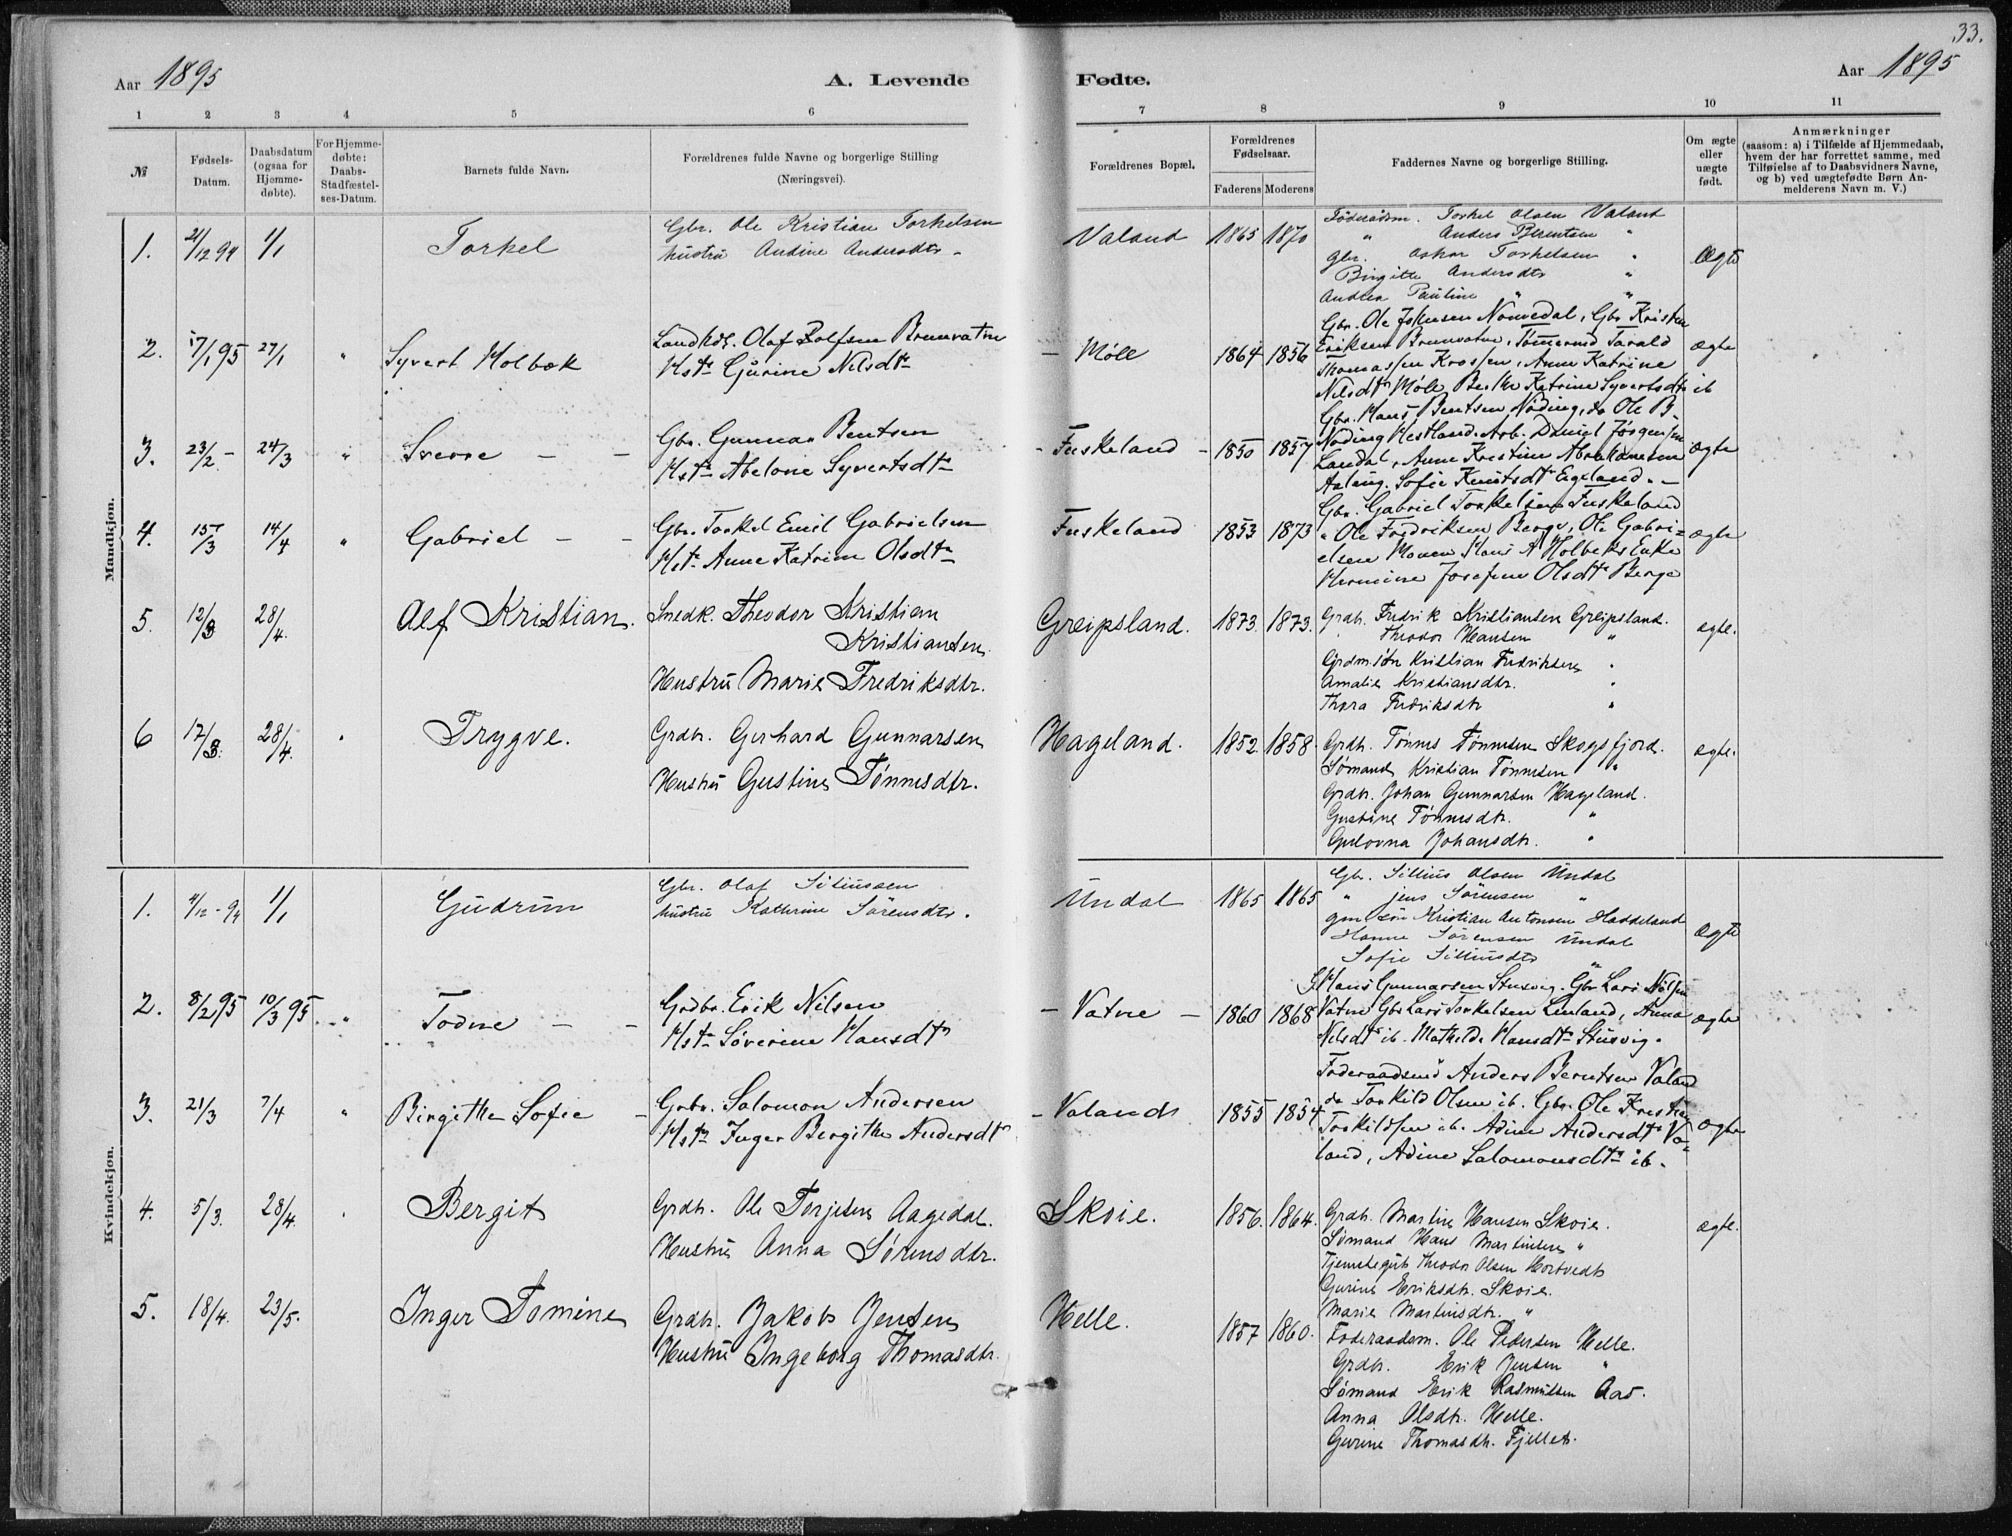 33.
Aar 1895
A. Levende
Fødte.
Aar 1895
1 2 3 4 5 6 7 8 9 10 11
№
Fødsels-
Datum.
Daabsdatum
(ogsaa for
Hjemme-
døbte).
For Hjemme-
døbte:
Daabs-
Stadfæstel-
ses-Datum.
Barnets fulde Navn.
Forældrenes fulde Navne og borgerlige Stilling
(Næringsvei).
Forældrenes Bopæl.
Forældrenes
Fødselsaar.
Faderens Moderens
Faddernes Navne og borgerlige Stilling.
Om ægte
eller
uægte
født.
Anmærkninger
(saasom: a) i Tilfælde af Hjemmedaab,
hvem der har forrettet samme, med
Tilføielse af to Daabsvidners Navne,
og b) ved uægtefødte Børn An-
melderens Navn m. V.)
Mandkjøn.
1. 21/12 94 1/1 Torkel
Gbr. Ole Kristian Torkelsen
hustru Andine Andersdtr.
Valand 1865 1870
Føderådsm. Torkel Olsen Valand
" Anders Berentsen "
gbr. Oskar Torkelsen "
Birgitte Andersdtr "
Andrea Pauline " "
Ægte
2. 17/1 95 27/1 " Syvert Holbæk
Landhdl. Olaf Rolfsen Brunvatne
Hstr Gurine Nilsdtr
- Møll 1864 1856
Gbr. Ole Johnsen Nomedal, Gbr Kristen
Eriksen Brunvatne, Tømermd Tarald
Thomassen Krossen, Anne Katrine
Nilsdtr Møll, Berthe Katrine Syvertsdtr ib
ægte
3. 23/2 - 24/3 " Sverre - -
Gbr. Gunnar Bentsen
Hstr Abelone Syvertsdtr
- Fuskeland - 1850 1857
Gbr. Hans Bentsen Nøding, do Ole B.
Nøding Hestland. Arb. Daniel Jørgensen
Landal, Anne Kristine Abrahamsen
Sofie Knutsdtr Eigeland. -
ægte
4. 15/3 14/4 " Gabriel - -
Gbr. Torkel Emil Gabrielsen
Hstr Anne Katrine Olsdtr
Fuskeland 1853 1873
Gbr. Gabriel Torkelsen Fuskeland
" Ole Fredriksen Berge, Ole Gabri=
elsen Moen Hans A Holbeks Enke
Hermine Josefine Olsdtr Berge
ægte
5. 12/3 28/4. Alf Kristian.
Snedk. Theodor Kristian
Kristiansen
Hustru Marie Fredriksdtr.
Greipsland. 1873. 1873.
Grdb. Fredrik Kristiansen Greipsland.
" Theodor Hansen "
Grdm.søn Kristian Fredriksen "
Amalie Kristiansdtr. "
Thora Fredriksdtr "
ægte.
6 17/3. 28/4. " Trygve.
Grdbr. Gerhard Gunnarsen
Hustru Gustine Tønnesdtr.
Hageland. 1852. 1858.
Grdb. Tønnes Tønnesen Skogsfjord.
Sømand Kristian Tønnesen "
Grdb. Johan Gunnarsen Hageland.
Gustine Tønnesdtr. "
Gulovna Johansdtr. "
ægte.
Kvindekjøn.
1. 4/12 - 94 1/1 Gudrun
Gbr. Olaf Siliussen
hustru Kathrine Sørensdtr.
Undal 1865 1865
Gb. Sillius Olsen Undal
" Jens Sørensen "
gm søn Kristian Antonsen Haddeland
Hanne Sørensen Undal
Sofie Silliusdtr "
Ægte
2. 8/2 95 10/3 95 " Todne - -
Grdbr. Erik Nilsen
Hstr Søverine Hansdtr
- Vatne - 1860 1868
Hans Gunnarsen Stusvig. Gbr Lars Nilsen
Vatne Gbr Lars Torkelsen Lunland, Anna
Nilsdtr ib. Mathilde Hansdtr Stusvig.
ægte
3. 21/3 7/4 " Birgithe Sofie -
Grbr. Salomon Andersen
Hstr Inger Bergithe Andersdtr
- Valand 1855 1854
Foderaadsmd Anders Berntsen Valand
do Torkild Olsen ib. Gbr. Ole Kristian
Torkildsen ib. Adine Andersdtr Va-
land, Adine Salomonsdtr ib.
ægte
4. 5/3. 28/4. " Bergit
Grdb. Ole Terjesen Aagedal.
Hustru Anna Sørensdtr.
Skoie. 1856. 1864.
Grdb. Martin Hansen Skoie.
Sømand Hans Martinsen "
Tjenestegut Theodor Olsen Hortvedt
Gurine Eriksdtr. Skoie.
Marie Martinsdtr. "
ægte.
5. 18/4. 23/5. Inger Tomine
Grdb. Jakob Jensen
Hustru Ingeborg Thomasdtr.
Helle. 1857 1860.
Foderaadsm. Ole Pedersen Helle.
Grdb. Erik Jensen "
Sømand Erik Rasmussen Aas.
Anna Olsdtr. Helle.
Gurine Thomasdtr. Fjellet.